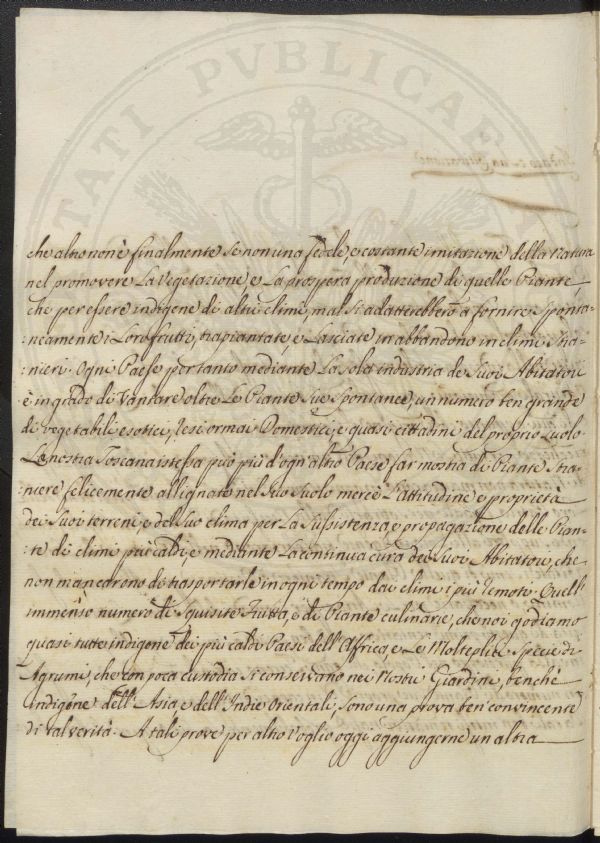 TATI PVBLICAE
che altro non è finalmente se non una fedele, e costante imitazione della Natura
nel promovere La Vegetazione, e La prospera produzione di quelle Piante,
che per essere indigene di altri climi, mal si adatterebbero a fornire sponta-
:neamente i Loro frutti, trapiantate, e Lasciate in abbandono in climi stra-
:nieri. Ogni Paese per tanto mediante La sola industria de Suoi Abitatori
è in grado di Vantare oltre Le Piante sue Spontanee, un numero ben grande
di Vegetabili esotici, resi ormai Domestici, e quasi cittadini del proprio Suolo
La nostra Toscana istessa può più d'ogn'altro Paese far mostra di Piante stra-
:niere felicemente allignate nel suo Suolo mercè L'attitudine e proprietà
dei Suoi terreni, e del Suo clima per La Sussistenza, e propagazione delle Pian-
:te di climi più caldi, e mediante La continua cura dei Suoi Abitatori, che
non mancarono di trasportarle in ogni tempo dai climi i più remoti. Quell'
immenso numero di Squisite Frutta, e di Piante culinarie, che noi godiamo
quasi tutte indigene dei più caldi Paesi dell'Affrica, e Le Molteplici Specie di
Agrumi, che con poca custodia si conservano nei Nostri Giardini, benchè
Indigene dell'Asia, e dell'Indie Orientali, sono una prova ben convincente
di tal verità. A tali prove per altro Voglio oggi aggiungerne un altra